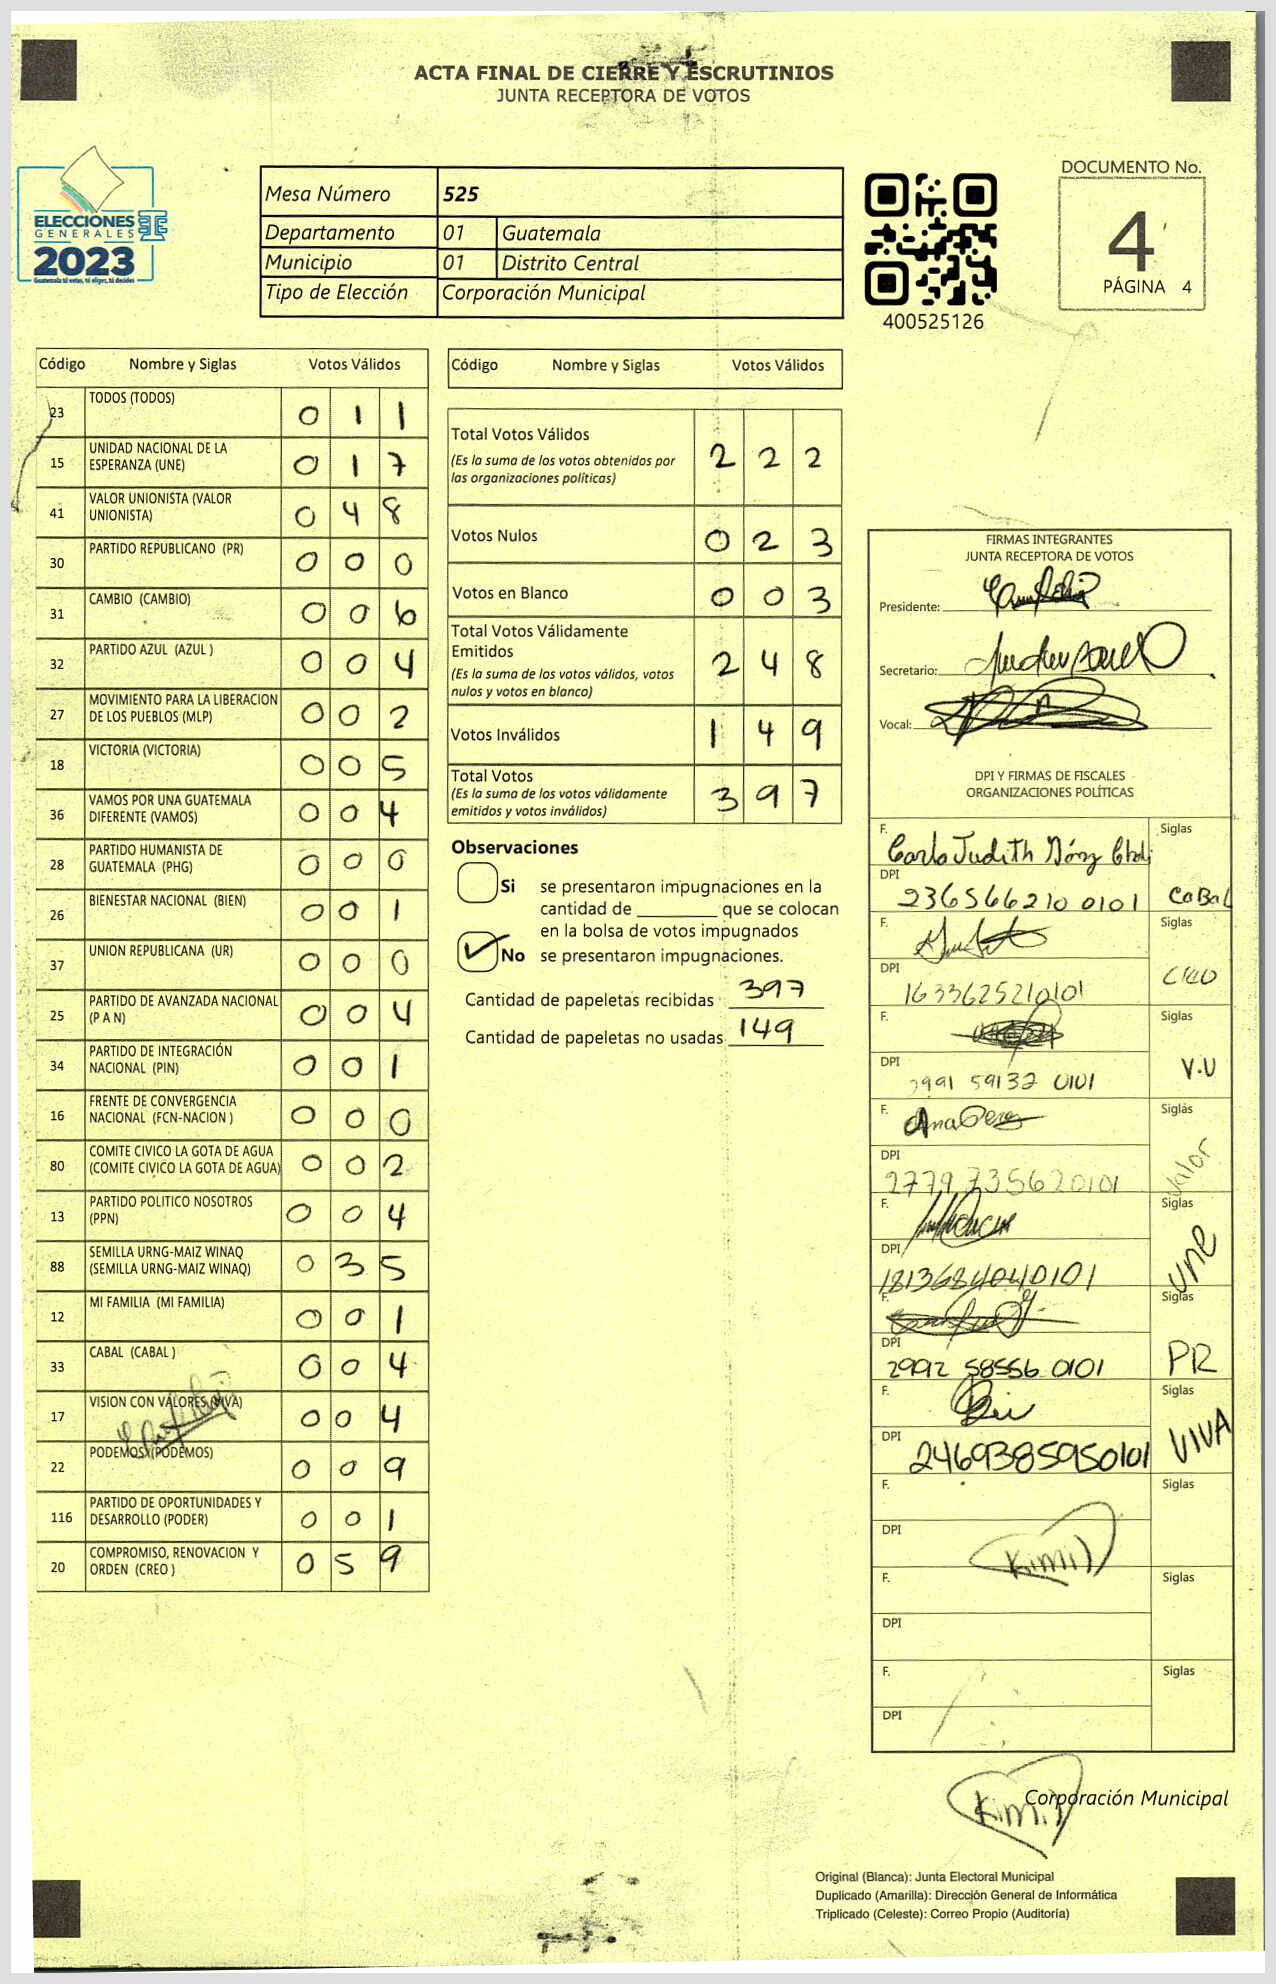 ACTA FINAL DE CIERRE Y ESCRUTINIOS
JUNTA RECEPTORA DE VOTOS
ELECCIONES
GENERALES
2023
Guatemala tú votas, tú eliges, tú decides
Mesa Número 525
Departamento 01 Guatemala
Municipio 01 Distrito Central
Tipo de Elección Corporación Municipal
400525126
DOCUMENTO No.
4
PÁGINA 4
Código Nombre y Siglas Votos Válidos
23 TODOS (TODOS) 0 1 1
15 UNIDAD NACIONAL DE LA ESPERANZA (UNE) 0 1 7
41 VALOR UNIONISTA (VALOR UNIONISTA) 0 4 8
30 PARTIDO REPUBLICANO (PR) 0 0 0
31 CAMBIO (CAMBIO) 0 0 6
32 PARTIDO AZUL (AZUL ) 0 0 4
27 MOVIMIENTO PARA LA LIBERACION DE LOS PUEBLOS (MLP) 0 0 2
18 VICTORIA (VICTORIA) 0 0 5
36 VAMOS POR UNA GUATEMALA DIFERENTE (VAMOS) 0 0 4
28 PARTIDO HUMANISTA DE GUATEMALA (PHG) 0 0 0
26 BIENESTAR NACIONAL (BIEN) 0 0 1
37 UNION REPUBLICANA (UR) 0 0 0
25 PARTIDO DE AVANZADA NACIONAL (P A N) 0 0 4
34 PARTIDO DE INTEGRACIÓN NACIONAL (PIN) 0 0 1
16 FRENTE DE CONVERGENCIA NACIONAL (FCN-NACION ) 0 0 0
80 COMITE CIVICO LA GOTA DE AGUA (COMITE CIVICO LA GOTA DE AGUA) 0 0 2
13 PARTIDO POLITICO NOSOTROS (PPN) 0 0 4
88 SEMILLA URNG-MAIZ WINAQ (SEMILLA URNG-MAIZ WINAQ) 0 3 5
12 MI FAMILIA (MI FAMILIA) 0 0 1
33 CABAL (CABAL ) 0 0 4
17 VISION CON VALORES (VIVA) 0 0 4
22 PODEMOS (PODEMOS) 0 0 9
116 PARTIDO DE OPORTUNIDADES Y DESARROLLO (PODER) 0 0 1
20 COMPROMISO, RENOVACION Y ORDEN (CREO ) 0 5 9
Código Nombre y Siglas Votos Válidos
Total Votos Válidos 2 2 2
(Es la suma de los votos obtenidos por
las organizaciones políticas)
Votos Nulos 0 2 3
Votos en Blanco 0 0 3
Total Votos Válidamente
Emitidos 2 4 8
(Es la suma de los votos válidos, votos
nulos y votos en blanco)
Votos Inválidos 1 4 9
Total Votos 3 9 7
(Es la suma de los votos válidamente
emitidos y votos inválidos)
Observaciones
Si se presentaron impugnaciones en la
cantidad de ________ que se colocan
en la bolsa de votos impugnados
No se presentaron impugnaciones.
Cantidad de papeletas recibidas 397
Cantidad de papeletas no usadas 149
FIRMAS INTEGRANTES
JUNTA RECEPTORA DE VOTOS
Presidente:
Secretario:
Vocal:
DPI Y FIRMAS DE FISCALES
ORGANIZACIONES POLÍTICAS
F. Carla Judith Siglas
DPI 2365662100101 CABAL
F. Siglas
DPI 1633625210101
F. Siglas
DPI 59132 0101 V.U
F. Ana Siglas
DPI 2779735620101 Valor
F. Siglas
DPI 1813684040101 UNE
F. Siglas
DPI 2992 58556 0101 PR
F. Siglas
DPI 2469385950101 VIVA
F. Siglas
DPI
Kimil
F. Siglas
DPI
F. Siglas
DPI
Corporación Municipal
Kimil
Original (Blanca): Junta Electoral Municipal
Duplicado (Amarilla): Dirección General de Informática
Triplicado (Celeste): Correo Propio (Auditoría)